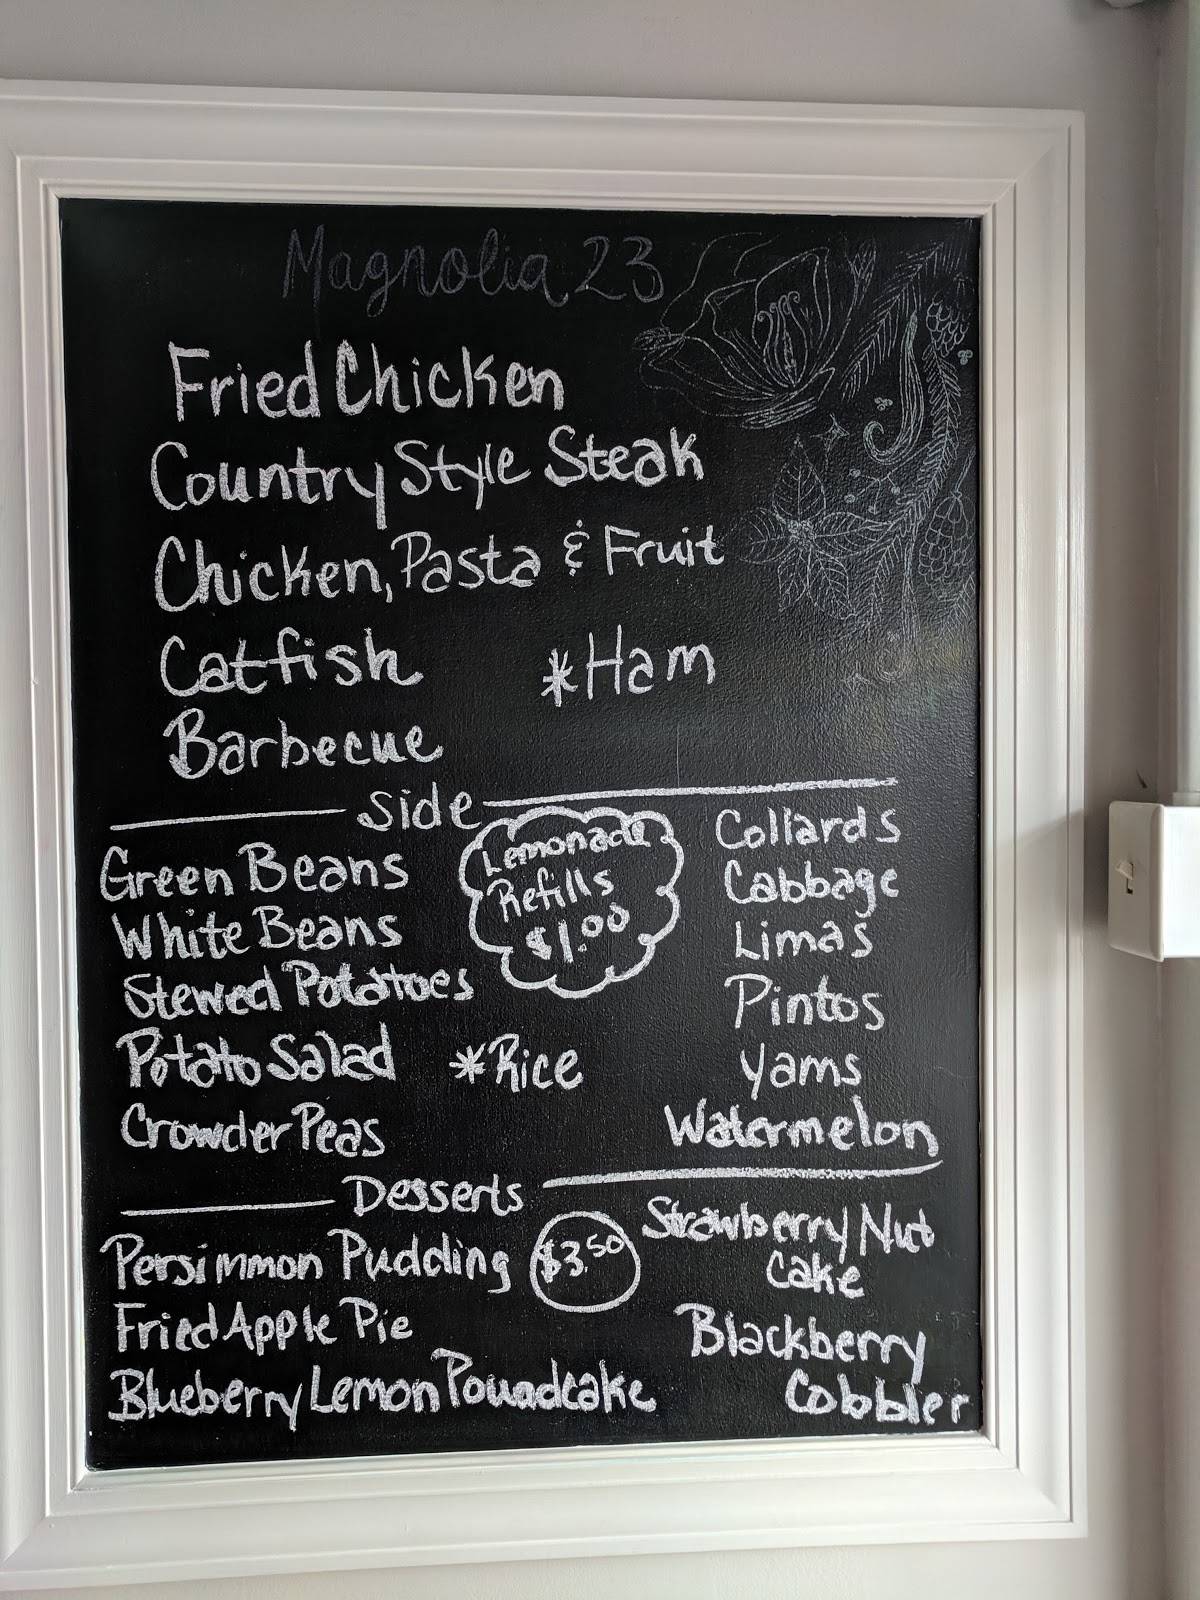 Magnolia 23
Fried Chicken
Country Style Steak
Chicken, Pasta & Fruit
Catfish *Ham
Barbecue
Side
Green Beans
White Beans
Stewed Potatoes
Potato Salad *Rice
Crowder Peas
Lemonade
Refills
$1.00
Collards
Cabbage
Limas
Pintos
Yams
Watermelon
Desserts
Persimmon Pudding
Fried Apple Pie
Blueberry Lemon Poundcake
$3.50
Strawberry Nut
Cake
Blackberry
Cobbler